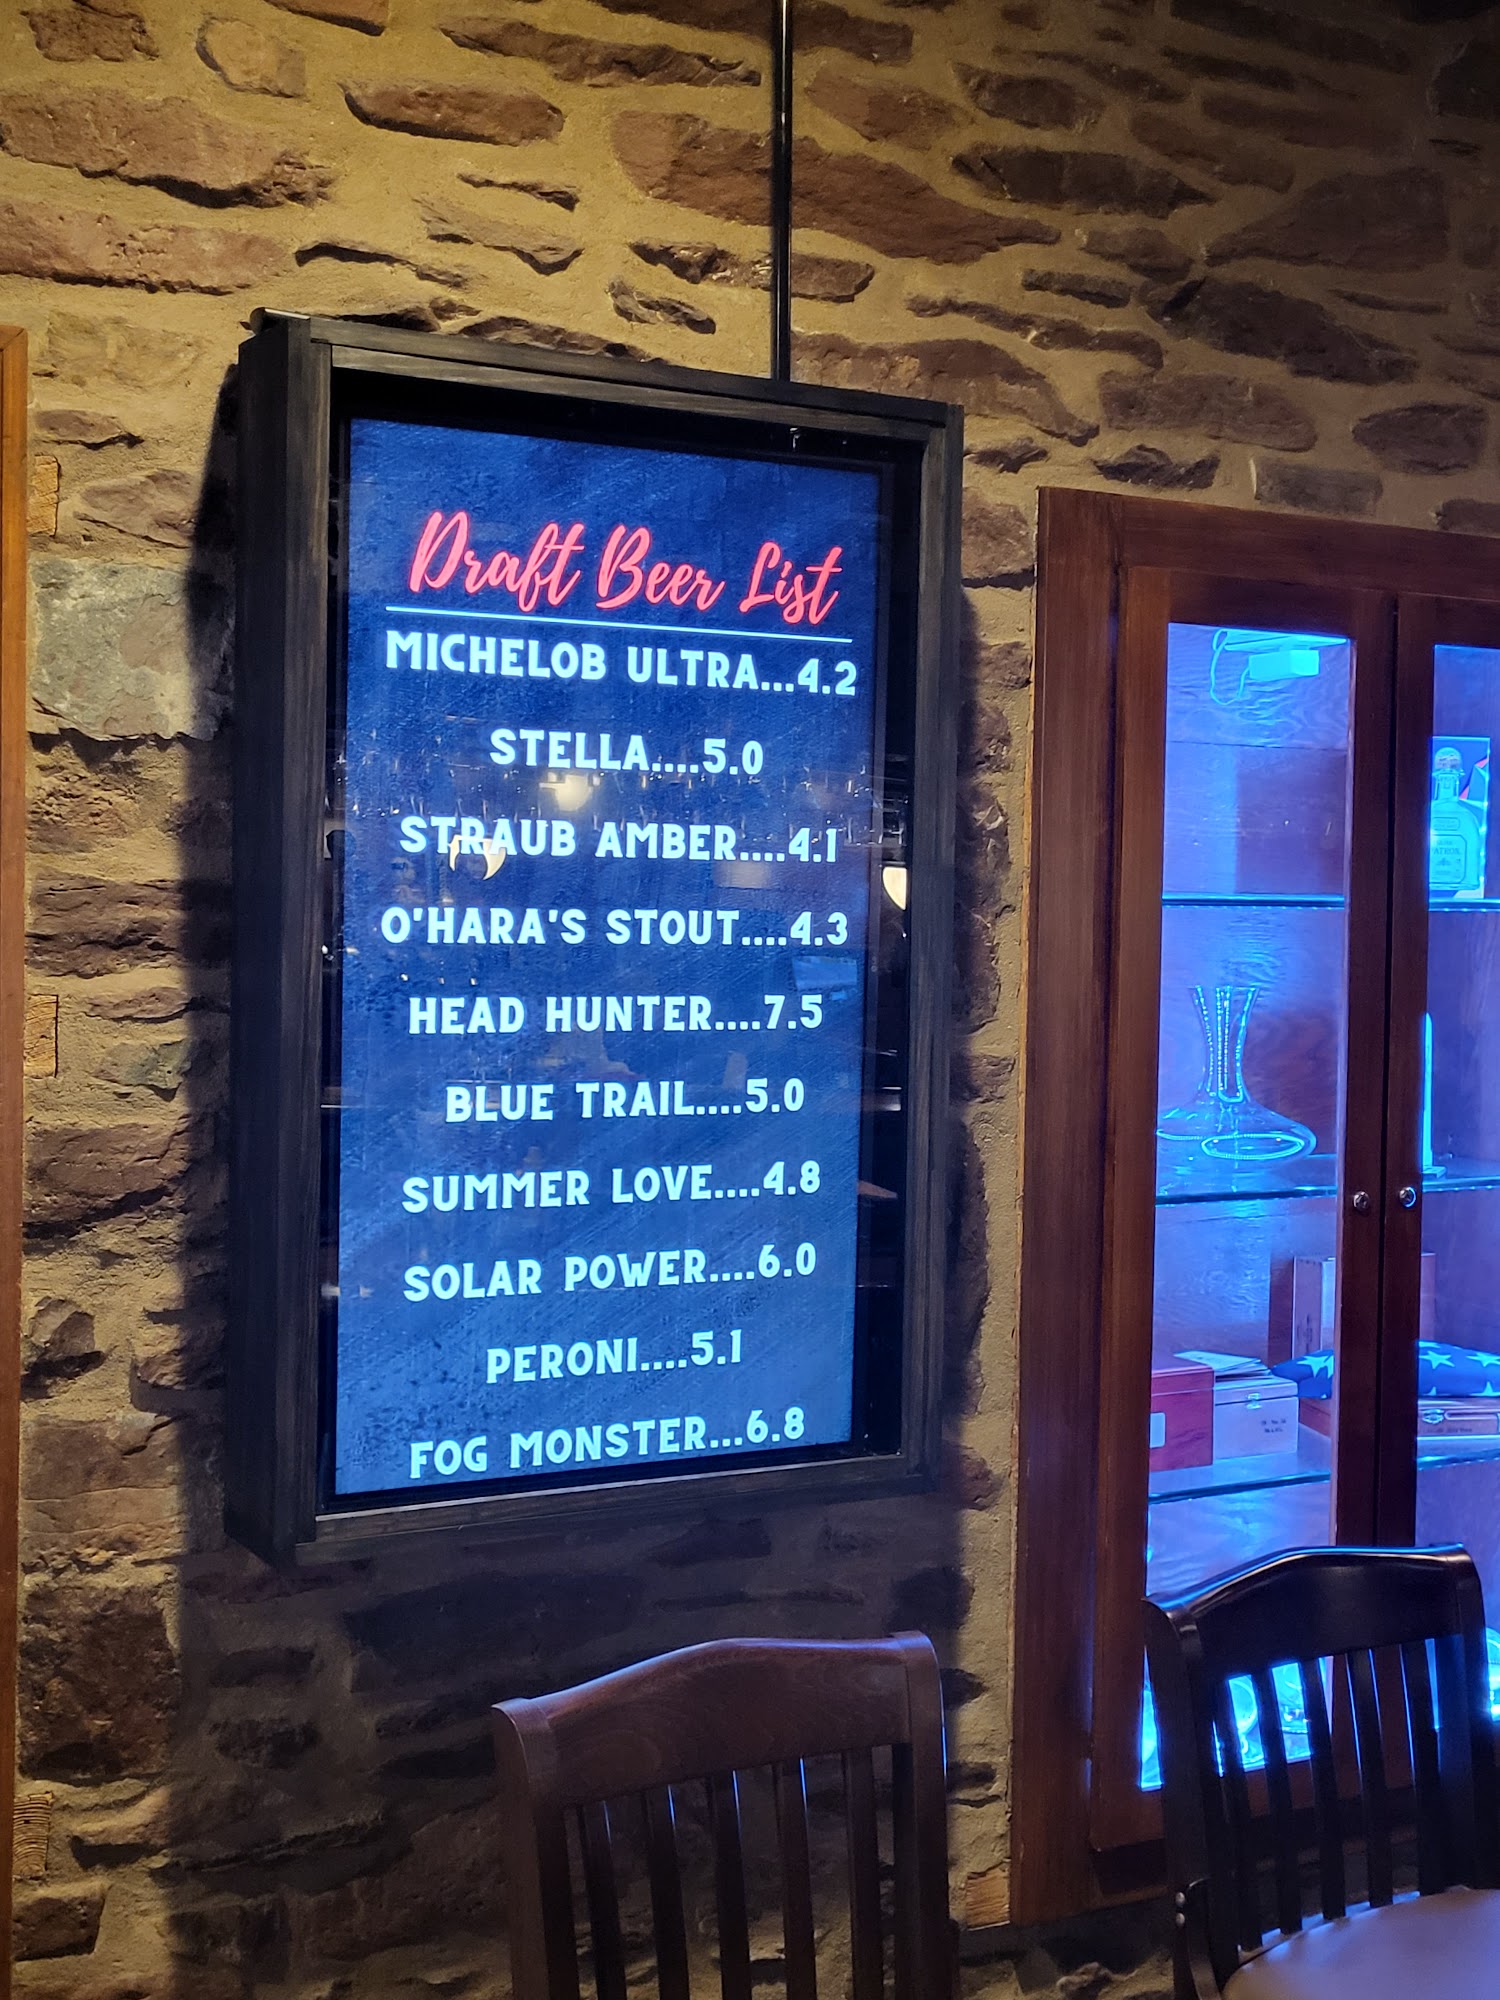 Draft Beer List
MICHELOB ULTRA...4.2
STELLA....5.0
STRAUB AMBER....4.1
O'HARA'S STOUT....4.3
HEAD HUNTER....7.5
BLUE TRAIL....5.0
SUMMER LOVE....4.8
SOLAR POWER....6.0
PERONI....5.1
FOG MONSTER...6.8
PATRON